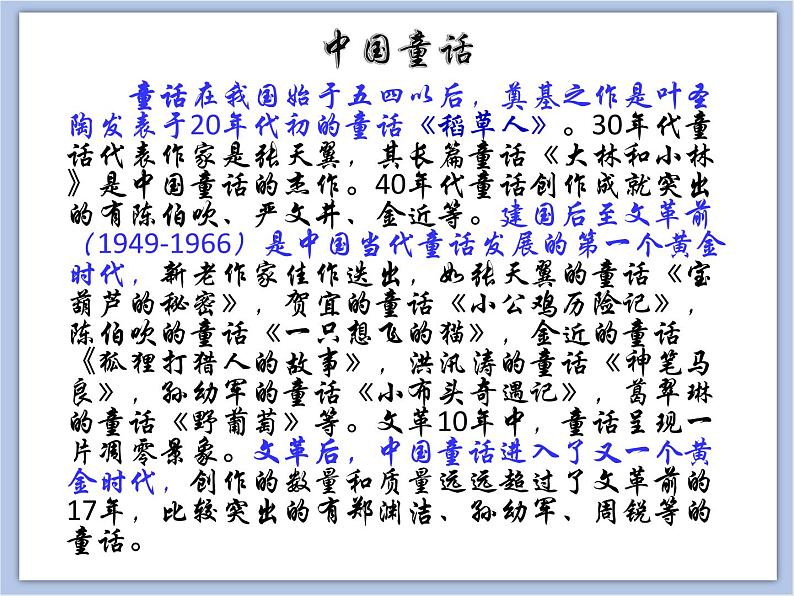 中国童话
童话在我国始于五四以后，奠基之作是叶圣
陶发表于20年代初的童话《稻草人》。30年代童
话代表作家是张天翼，其长篇童话《大林和小林
》是中国童话的杰作。40年代童话创作成就突出
的有陈伯吹、严文井、金近等。建国后至文革前
（1949-1966）是中国当代童话发展的第一个黄金
时代，新老作家佳作迭出，如张天翼的童话《宝
葫芦的秘密》，贺宜的童话《小公鸡历险记》，
陈伯吹的童话《一只想飞的猫》，金近的童话
《狐狸打猎人的故事》，洪汛涛的童话《神笔马
良》，孙幼军的童话《小布头奇遇记》，葛翠琳
的童话《野葡萄》等。文革10年中，童话呈现一
片凋零景象。文革后，中国童话进入了又一个黄
金时代，创作的数量和质量远远超过了文革前的
17年，比较突出的有郑渊洁、孙幼军、周锐等的
童话。